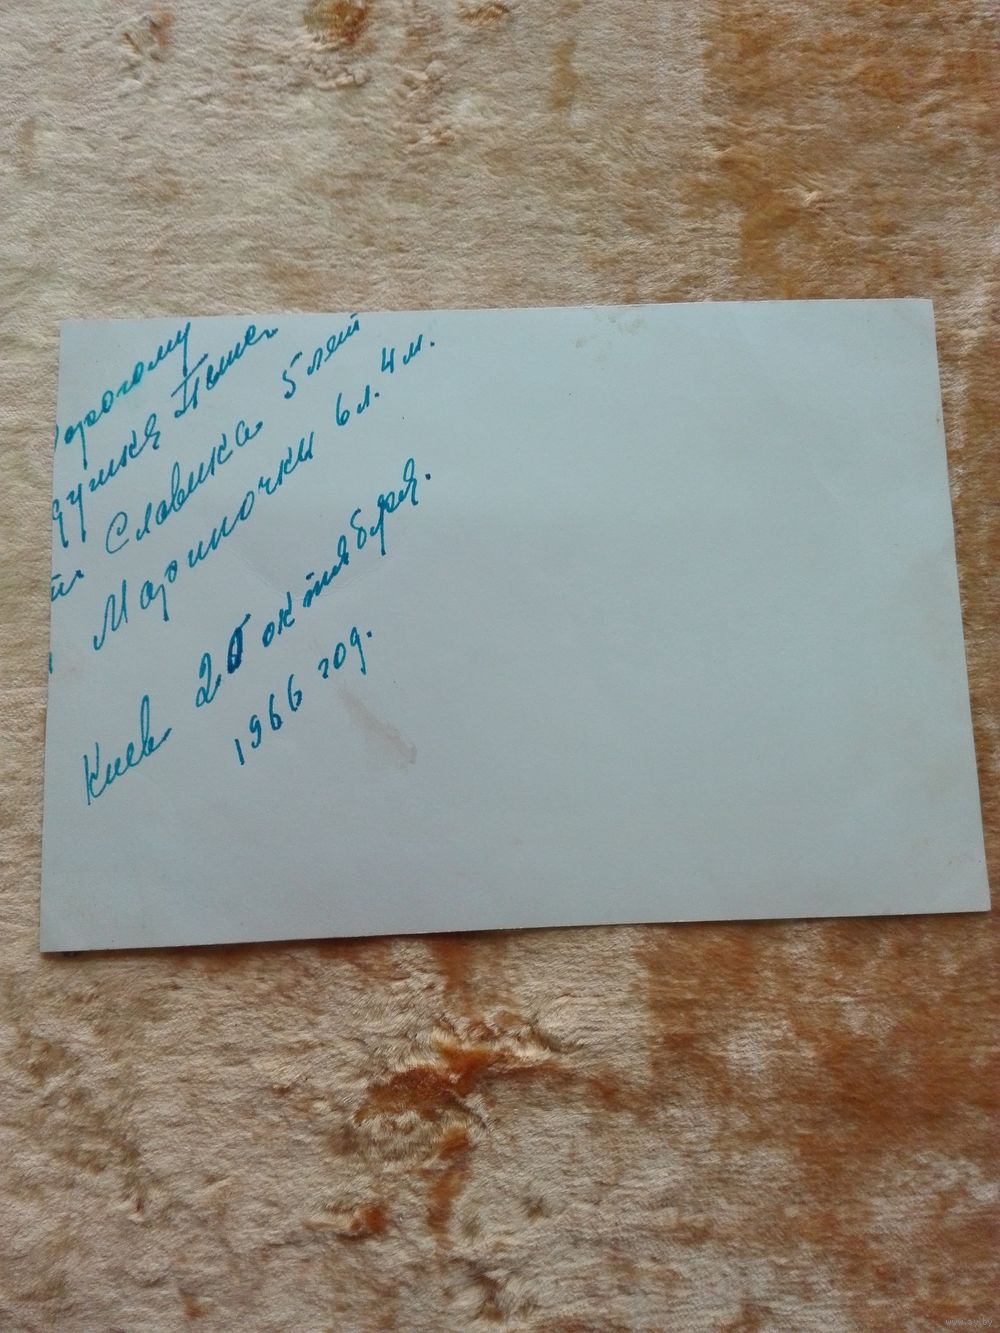 орогому
душке
от Славика 5 лет
Мариночки 6 л. 4 м.
Киев 20 октября.
1966 год.
www.ay.by